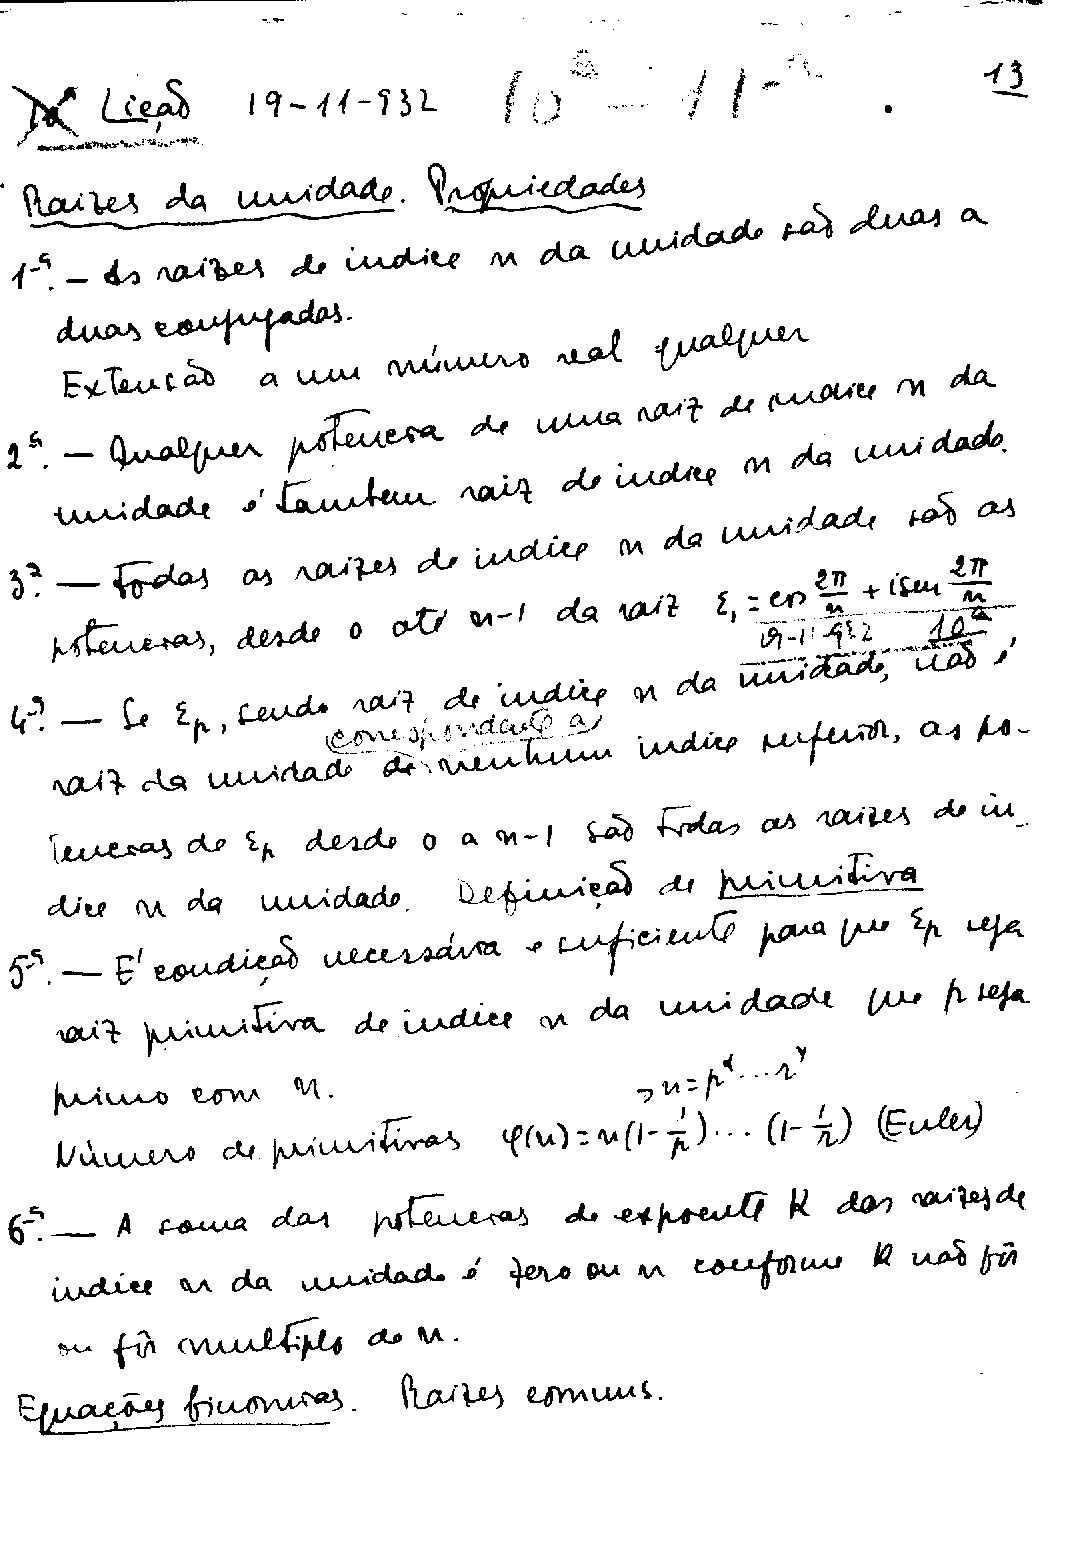 13
Lição 19-11-932 10ª - 11-ª
Raizes da unidade. Propriedades
1-ª. - As raizes de indice n da unidade são duas a
duas conjugadas.
Extensão a um número real qualquer
2ª. - Qualquer potencia de uma raiz de indice n da
unidade é tambem raiz de indice n da unidade.
3ª. - Todas as raizes de indice n da unidade são as
potencias, desde 0 até n-1 da raiz ε₁ = cos 2π/n + i sen 2π/n
19-11-932 10ª
4-ª. - Se εp, sendo raiz de indice n da unidade, não é
correspondente a
raiz da unidade de nenhum indice inferior, as po-
tencias de εp desde 0 a n-1 são todas as raizes de in-
dice n da unidade. Definição de primitiva
5-ª. - É condição necessária e suficiente para que εp seja
raiz primitiva de indice n da unidade que p seja
primo com n.
, n = p^α ... r^γ
Número de primitivas φ(n) = n(1 - 1/p) ... (1 - 1/r) (Euler)
6-ª. - A soma das potencias de expoente K das raizes de
indice n da unidade é zero ou n conforme K não fôr
ou fôr multiplo de n.
Equações binomias. Raizes comuns.